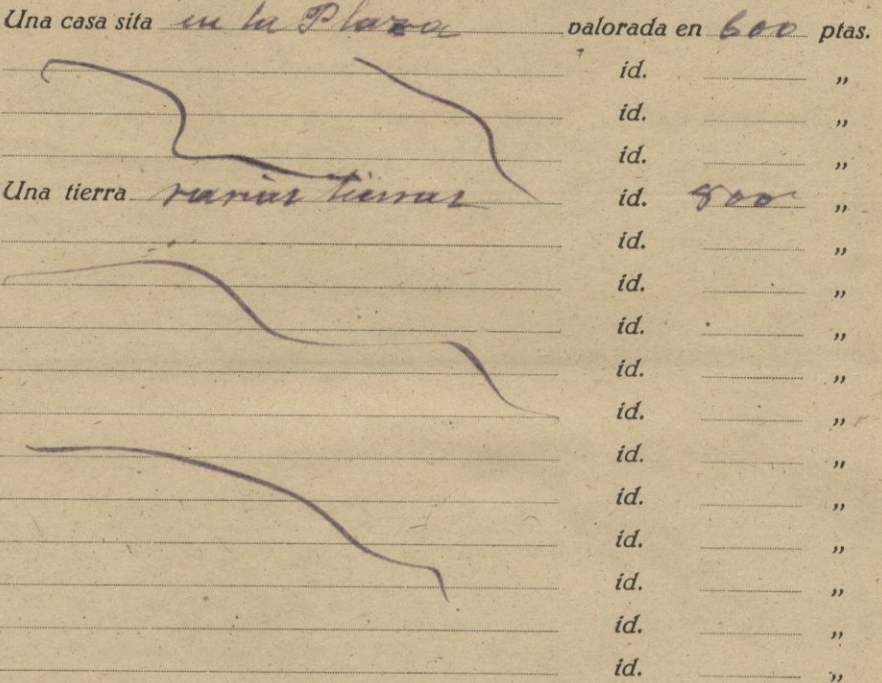 Una casa sita en la Plaza valorada en 600 ptas.
id. „
id. „
id. „
Una tierra varias tierras id. 800 „
id. „
id. „
id. „
id. „
id. „
id. „
id. „
id. „
id. „
id. „
id. „